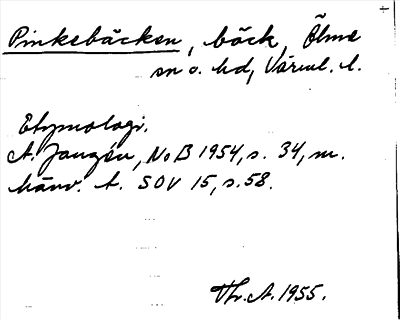 Pinkebäcken, bäck, Ölme
sn o. hd, Värml. l.
Etymologi.
A. Janzén, NoB 1954, s. 34, m.
hänv. t. SOV 15, s. 58.
Th. A. 1955.